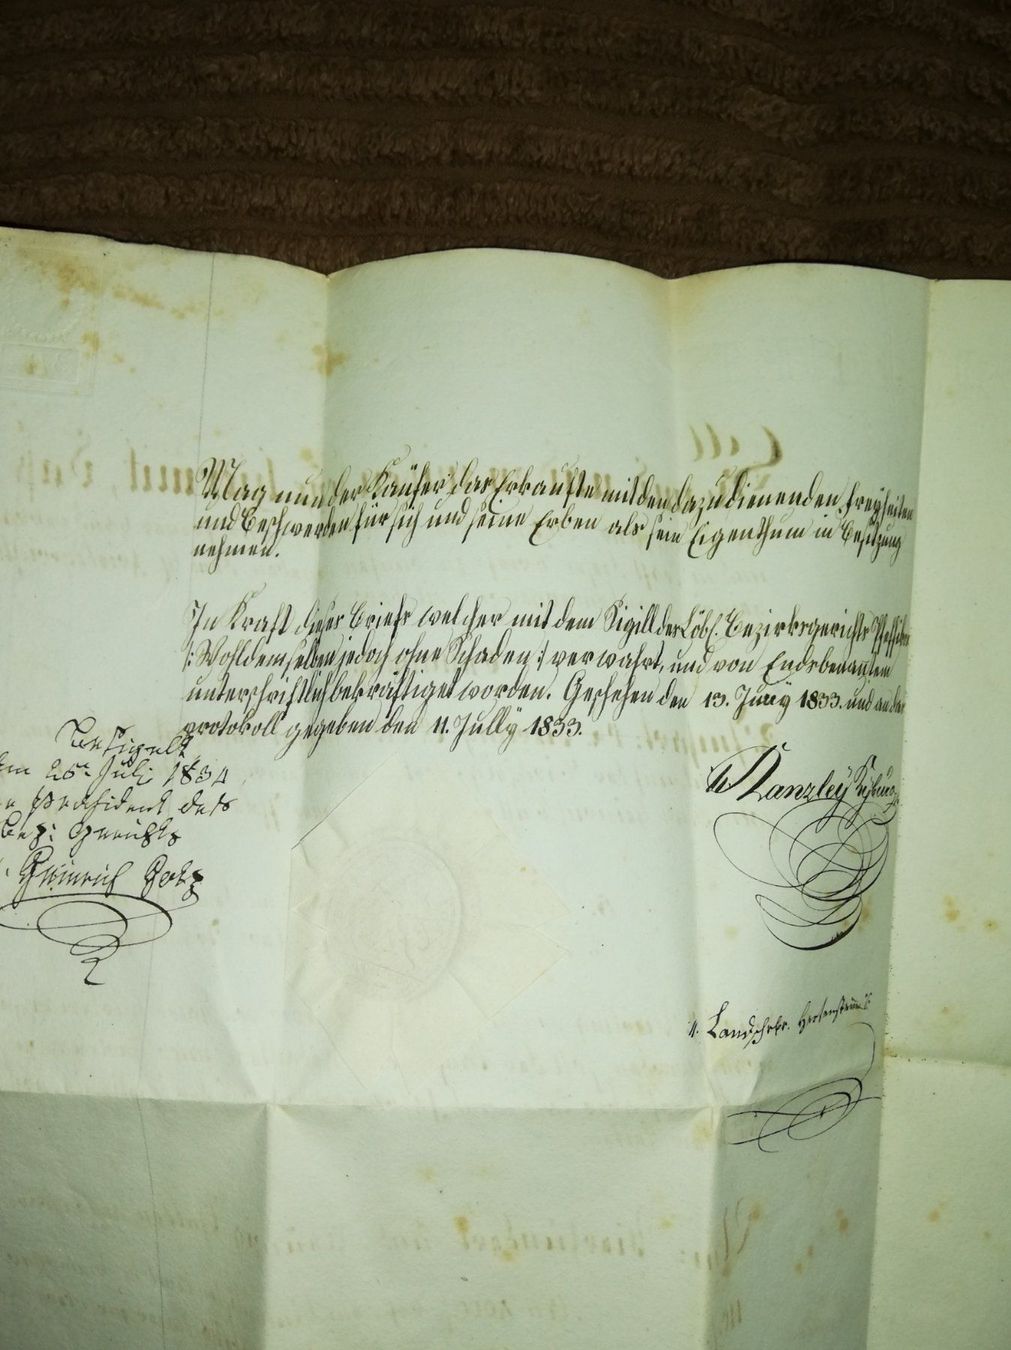 Mag nun der Käufer das Erkaufte mit den dazu dienenden Freyheiten
und Beschwerden für sich und seine Erben als sein Eigenthum in Besitzung
nehmen.
In Kraft dieses Briefs welcher mit dem Sigill der Löbl. Bezirksgerichts
/: Wohldemselben jedoch ohne Schaden :/ verwahrt, und von Endsbenanntem
unterschriftlich bekräftiget worden. Geschehen den 13. Juny 1833. und an das
protokoll gegeben den 11. Jully 1833.
Besigelt
am 26t Juli 1834
Präsident des
Bez: Gerichts
Heinrich Gotz
Kanzley
Landschrbr.